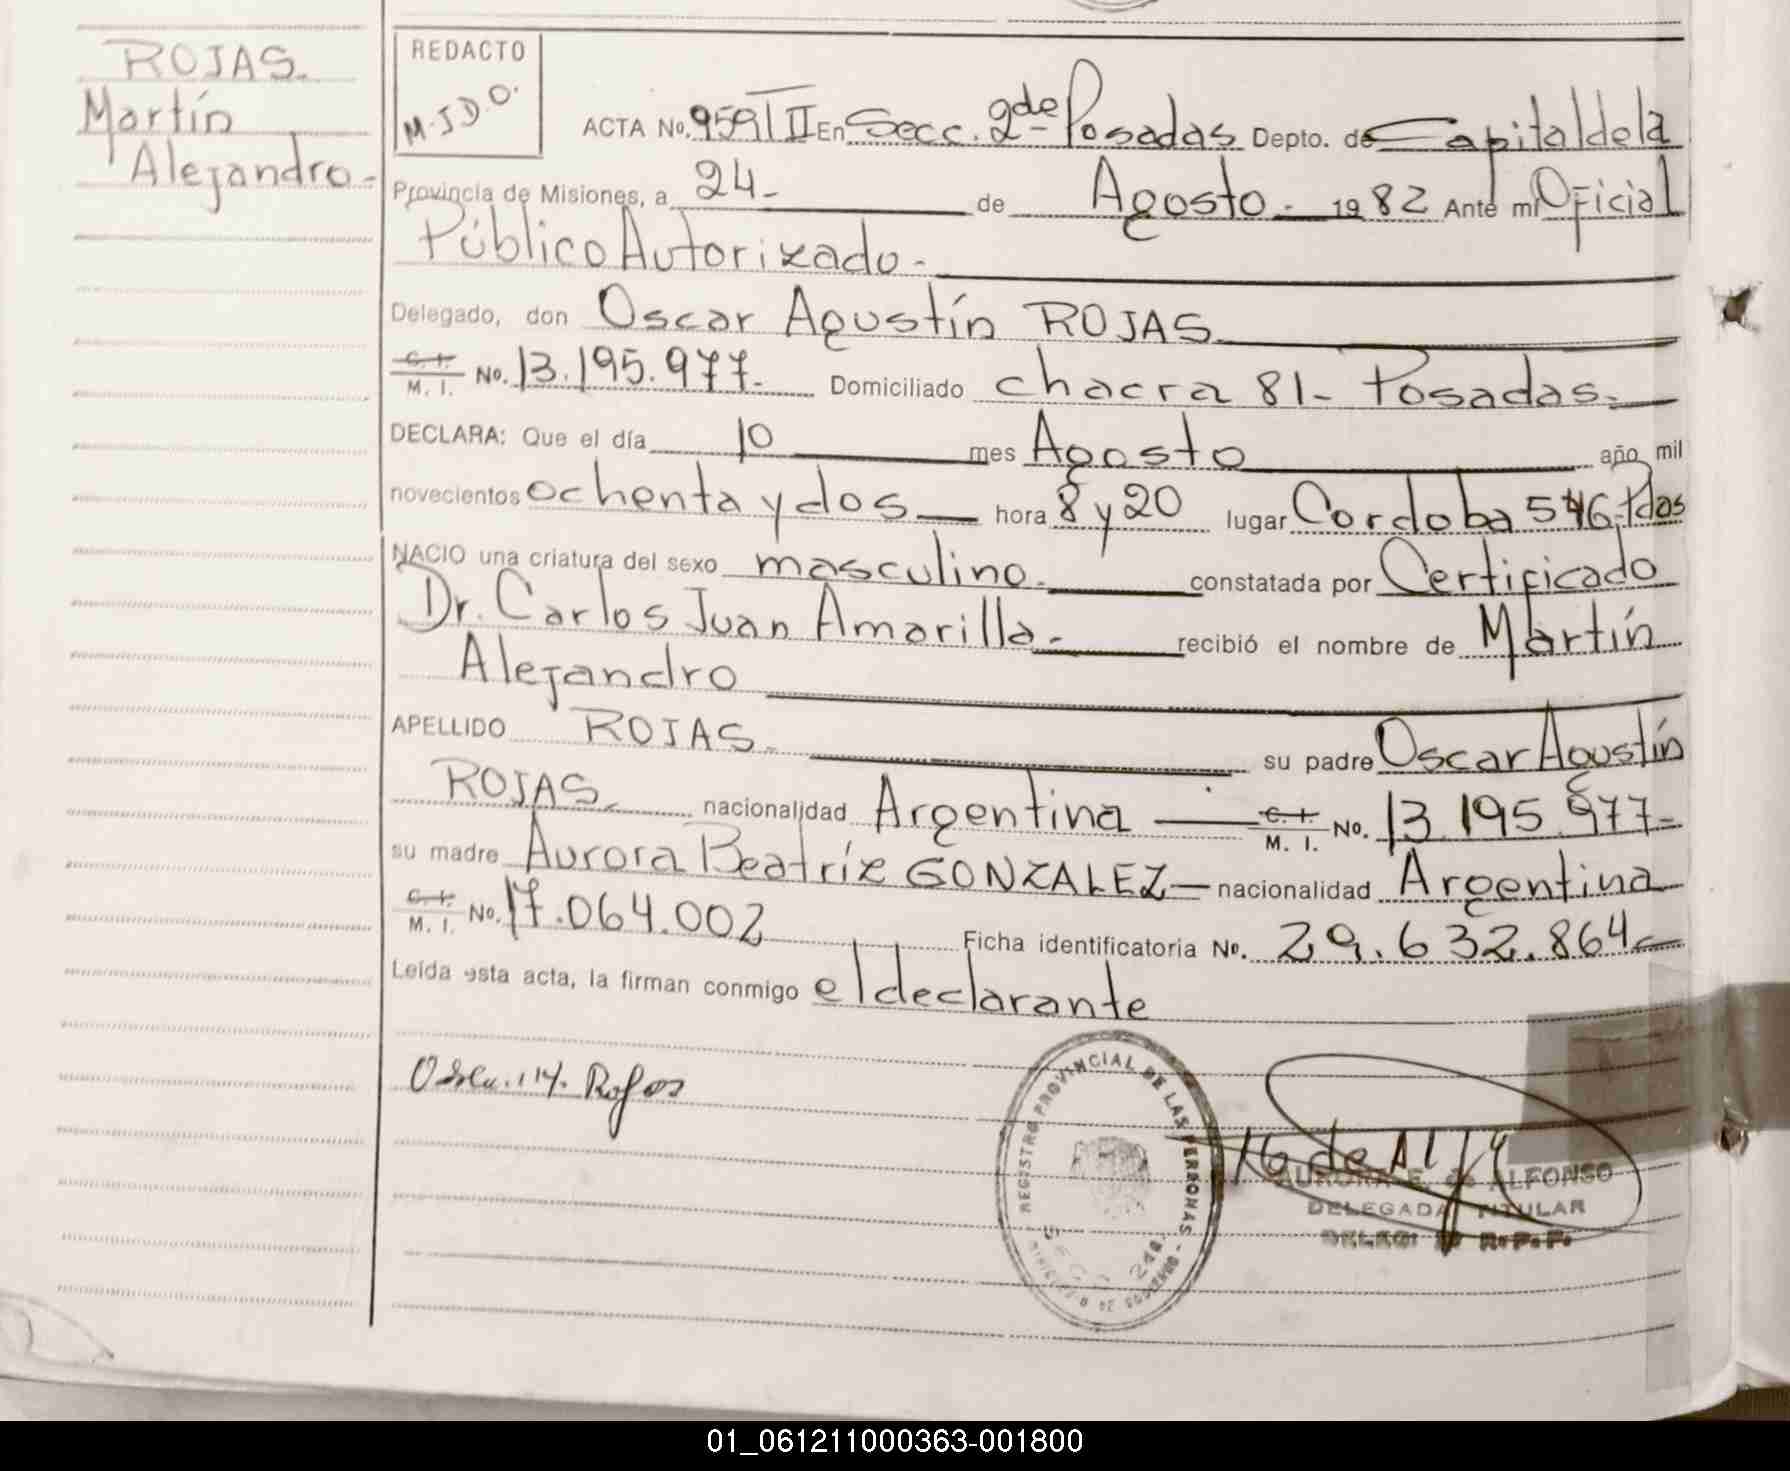 ROJAS.
Martín
Alejandro-
REDACTO
M.J.D.O.
ACTA No. 959 T II En Secc. 2da Posadas Depto. de Capital de la
Provincia de Misiones, a 24- de Agosto - 1982 Ante mi Oficial
Público Autorizado.-
Delegado, don Oscar Agustín ROJAS
C. I. / M. I. No. 13.195.977- Domiciliado chacra 81- Posadas.-
DECLARA: Que el día 10 mes Agosto año mil
novecientos ochenta y dos hora 8 y 20 lugar Cordoba 546, Pdas
NACIO una criatura del sexo masculino.- constatada por Certificado
Dr. Carlos Juan Amarilla.- recibió el nombre de Martín
Alejandro
APELLIDO ROJAS.- su padre Oscar Agustín
ROJAS.- nacionalidad Argentina C. I. / M. I. No. 13.195.977-
su madre Aurora Beatríz GONZALEZ- nacionalidad Argentina
C. I. / M. I. No. 17.064.002 Ficha identificatoria No. 29.632.864-
Leída esta acta, la firman conmigo el declarante
Rojas
REGISTRO PROVINCIAL DE LAS PERSONAS
AURORA E. de ALFONSO
DELEGADA TITULAR
R.P.P.
01_061211000363-001800